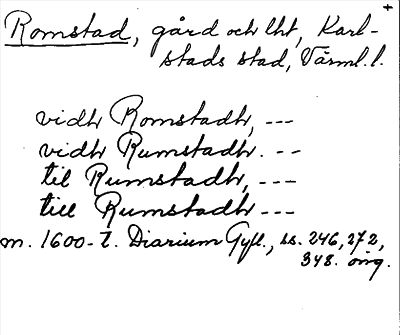 +
Romstad, gård och lht, Karl-
stads stad, Värml.l.
vidh Romstadh, ---
vidh Rumstadh. ---
til Rumstadh, ---
till Rumstadh ---
m. 1600-t. Diarium Gyll., ss. 246, 272,
348. orig.